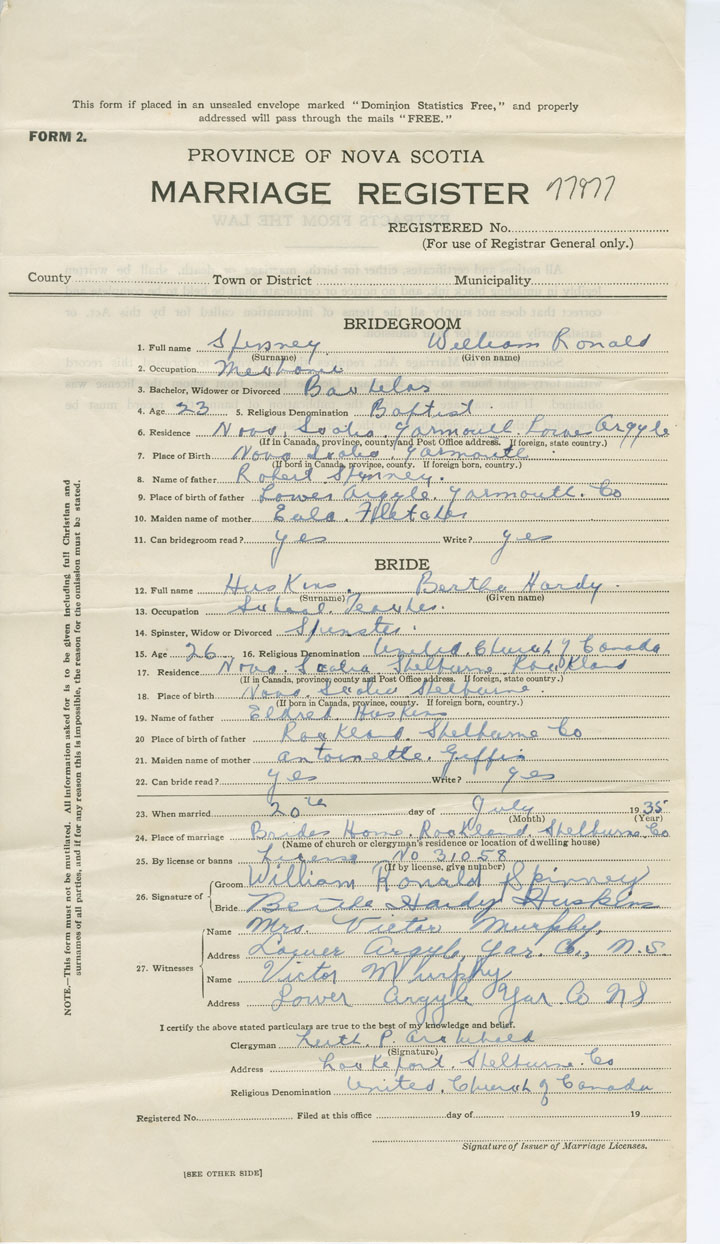 This form if placed in an unsealed envelope marked "Dominion Statistics Free," and properly
addressed will pass through the mails "FREE."
FORM 2.
PROVINCE OF NOVA SCOTIA
MARRIAGE REGISTER 77977
REGISTERED No.
(For use of Registrar General only.)
County Town or District Municipality
BRIDEGROOM
1. Full name Spinney William Ronald
(Surname) (Given name)
2. Occupation
3. Bachelor, Widower or Divorced
4. Age 23 5. Religious Denomination Baptist
6. Residence Nova Scotia, Yarmouth, Lower Argyle
(If in Canada, province, county and Post Office address. If foreign, state country.)
7. Place of Birth Nova Scotia, Yarmouth
(If born in Canada, province, county. If foreign born, country.)
8. Name of father Robert Spinney.
9. Place of birth of father Lower Argyle. Yarmouth. Co
10. Maiden name of mother Fletcher
11. Can bridegroom read? yes Write? yes
BRIDE
12. Full name Huskins. Bertha Hardy.
(Surname) (Given name)
13. Occupation School Teacher.
14. Spinster, Widow or Divorced Spinster.
15. Age 26 16. Religious Denomination United. Church of Canada
17. Residence Nova. Scotia. Shelburne Rockland
(If in Canada, province, county and Post Office address. If foreign, state country.)
18. Place of birth Nova. Scotia Shelburne.
(If born in Canada, province, county. If foreign born, country.)
19. Name of father Eldred Huskins
20 Place of birth of father Rockland. Shelburne Co
21. Maiden name of mother Antoinette. Giffin
22. Can bride read? yes Write? yes
23. When married 20th day of July 1935
(Month) (Year)
24. Place of marriage Brides Home. Rockland. Shelburne. Co
(Name of church or clergyman's residence or location of dwelling house)
25. By license or banns License No 31058
(If by license, give number)
26. Signature of Groom William Ronald Spinney
Bride Bertha Hardy Huskins
27. Witnesses Name Mrs. Victor Murphy,
Address Lower Argyle, Yar. Co., N.S.
Name Victor Murphy
Address Lower Argyle Yar Co NS
I certify the above stated particulars are true to the best of my knowledge and belief.
Clergyman P. Archibald
(Signature)
Address Lockeport. Shelburne. Co
Religious Denomination United. Church of Canada
Registered No. Filed at this office day of 19
Signature of Issuer of Marriage Licenses.
[SEE OTHER SIDE]
NOTE.—This form must not be mutilated. All information asked for is to be given including full Christian and
surnames of all parties, and if for any reason this is impossible, the reason for the omission must be stated.